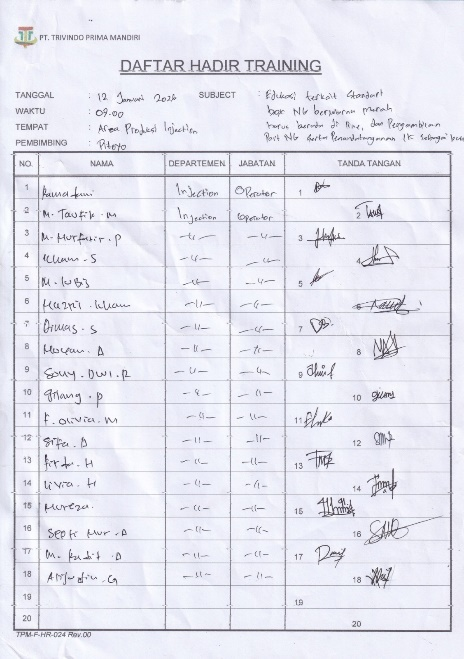 PT. TRIVINDO PRIMA MANDIRI
DAFTAR HADIR TRAINING
TANGGAL : 12 Januari 2026
WAKTU : 09.00
TEMPAT : Area Produksi Injection
PEMBIMBING : Pitoyo
SUBJECT : Edukasi terkait Standart
box NG berwarna merah
harus berada di line, dan Pengambilan
Part NG serta Penandatanganan IK sebagai
NO. NAMA DEPARTEMEN JABATAN TANDA TANGAN
1 Injection Operator 1
2 M. Taufik. M Injection Operator 2
3 M. .P -"- -"- 3
4 Ilham. S -"- -"- 4
5 M. -"- -"- 5
6 Ilham -"- -"- 6
7 Dimas. S -"- -"- 7
8 -"- -"- 8
9 Sony. Dwi. R -"- -"- 9
10 Gilang. P -"- -"- 10
11 F. Olivia. M -"- -"- 11
12 Sifa. A -"- -"- 12
13 -"- -"- 13
14 Livia. H -"- -"- 14
15 -"- -"- 15
16 Septi Nur. A -"- -"- 16
17 M. -"- -"- 17
18 -"- -"- 18
19 19
20 20
TPM-F-HR-024 Rev.00